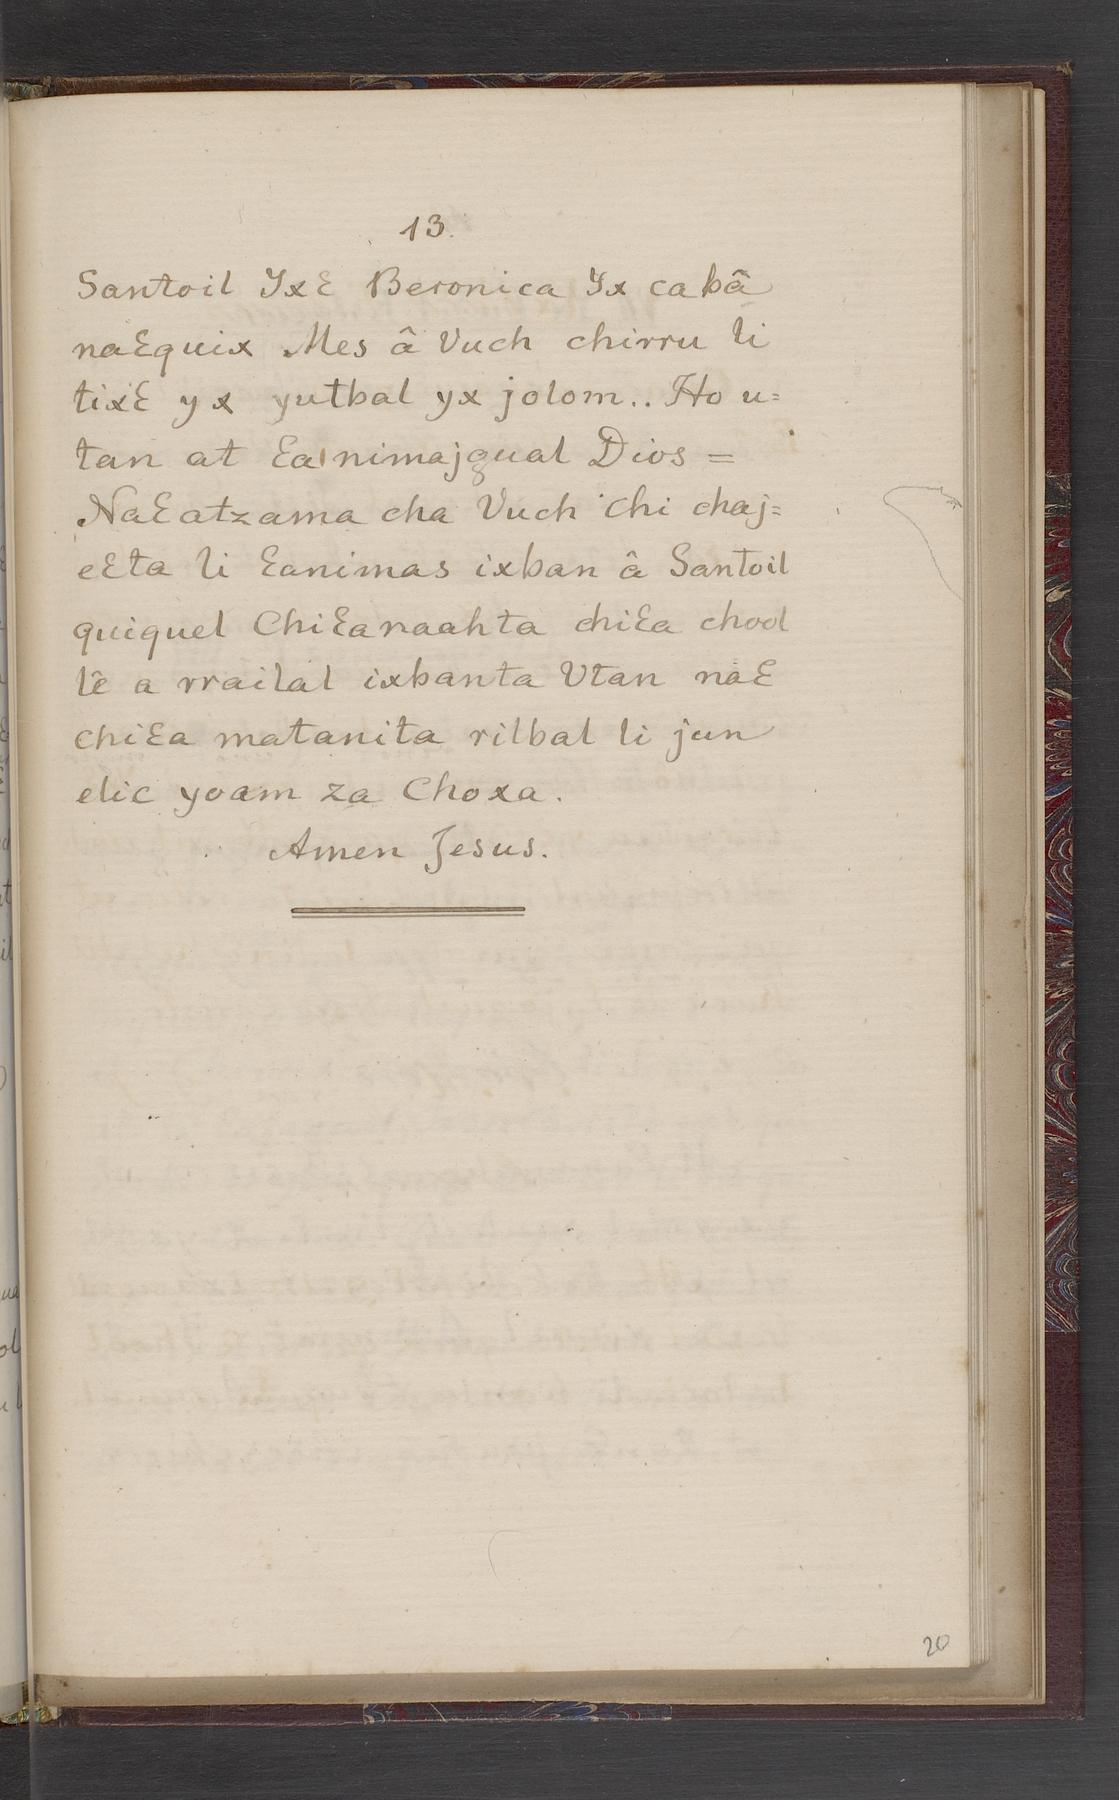 13.
Santoil Yxꜫ Beronica Yx cabâ
naꜫquix Mes â Vuch chirru li
tixꜫ yx yutbal yx jolom.. Ho u=
tan at ꜫa nimajgual Dios =
Naꜫatzama cha Vuch chi chaj=
eꜫta li ꜫanimas ixban â Santoil
quiquel Chiꜫanaahta chiꜫa chool
lê a rrailal ixbanta Vtan naꜫ
chiꜫa matanita rilbal li jun
elic yoam za Choxa.
Amen Jesus.
20